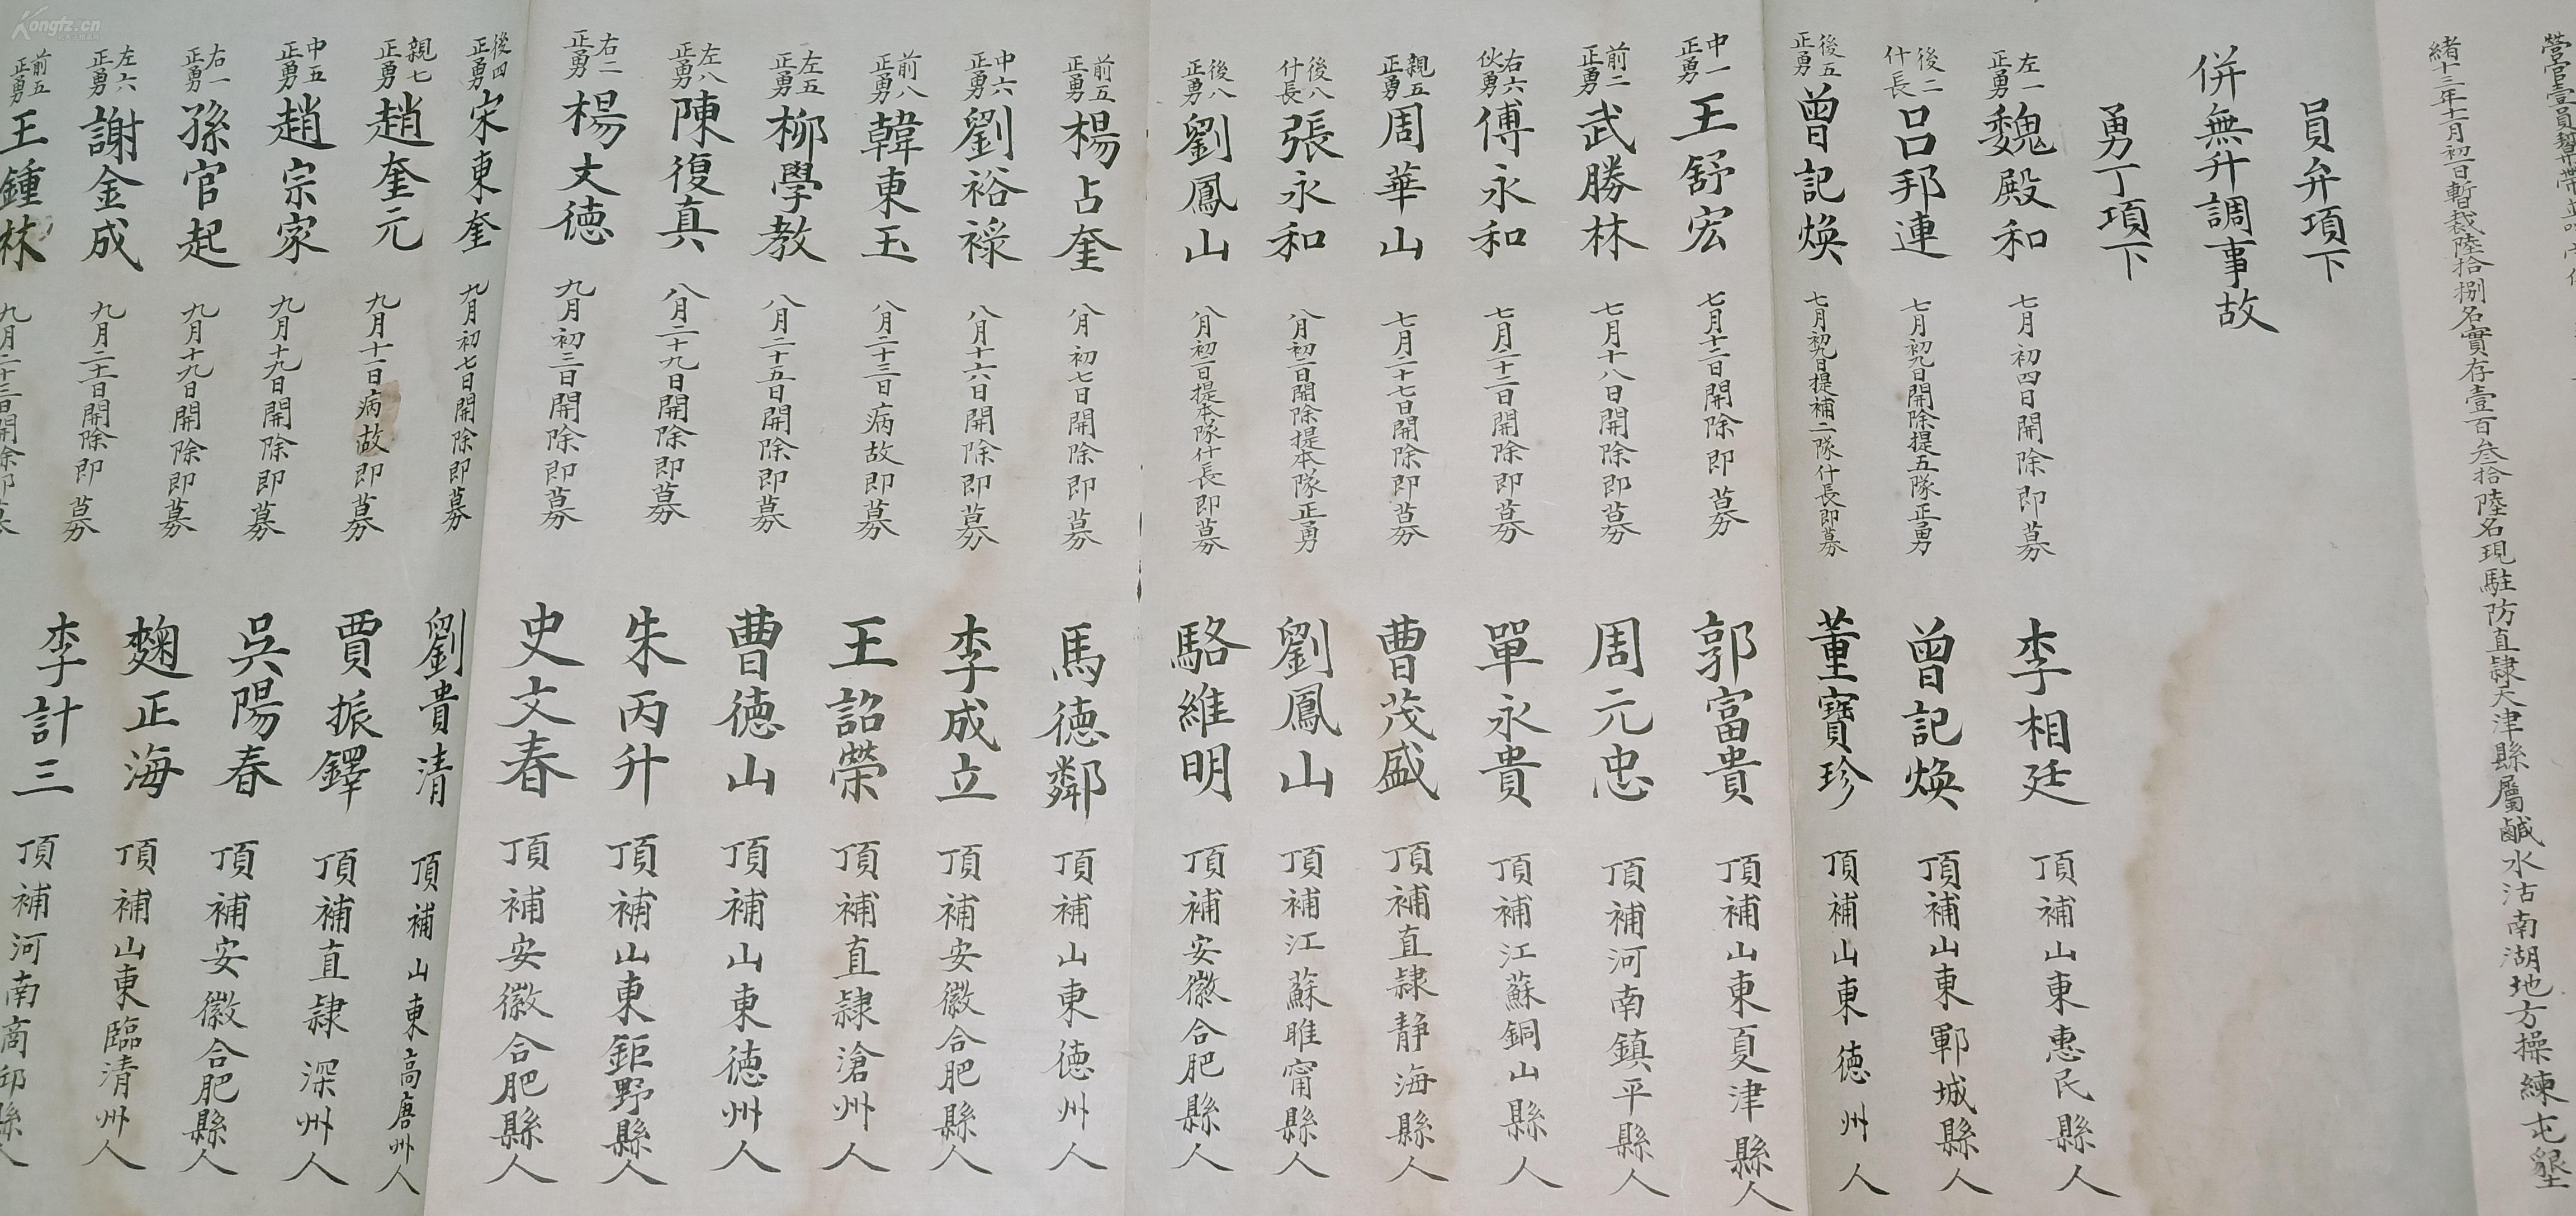 營官壹員幫帶
緒十三年十一月初一日暫裁陸拾捌名實存壹百叁拾陸名現駐防直隸天津縣屬鹹水沽南湖地方操練屯墾
員弁項下
併無升調事故
勇丁項下
左一正勇魏殿和七月初四日開除即募李相廷頂補山東惠民縣人
後二什長呂邦連七月初九日開除提五隊正勇曾記煥頂補山東鄆城縣人
後五正勇曾記煥七月初九日提補二隊什長即募董寶珍頂補山東德州人
中一正勇王舒宏七月十二日開除即募郭富貴頂補山東夏津縣人
前二正勇武勝林七月十八日開除即募周元忠頂補河南鎮平縣人
右六伙勇傅永和七月二十二日開除即募單永貴頂補江蘇銅山縣人
親五正勇周華山七月二十七日開除即募曹茂盛頂補直隸静海縣人
後八什長張永和八月初二日開除提本隊正勇劉鳳山頂補江蘇睢甯縣人
後八正勇劉鳳山八月初二日提本隊什長即募駱維明頂補安徽合肥縣人
前五正勇楊占奎八月初七日開除即募馬德鄰頂補山東德州人
中六正勇劉裕祿八月十六日開除即募李成立頂補安徽合肥縣人
前八正勇韓東玉八月二十三日病故即募王詔榮頂補直隸滄州人
左五正勇柳學教八月二十五日開除即募曹德山頂補山東德州人
左八正勇陳復真八月二十九日開除即募朱丙升頂補山東鉅野縣人
右二正勇楊文德九月初三日開除即募史文春頂補安徽合肥縣人
後四正勇宋東奎九月初七日開除即募劉貴清頂補山東高唐州人
親七正勇趙奎元九月十一日病故即募賈振鐸頂補直隸深州人
中五正勇趙宗家九月十九日開除即募吳陽春頂補安徽合肥縣人
右一正勇孫官起九月十九日開除即募麴正海頂補山東臨清州人
左六正勇謝金成九月二十一日開除即募李計三頂補河南商邱縣人
前五正勇王鍾林九月二十三日開除即募
Kongfz.cn